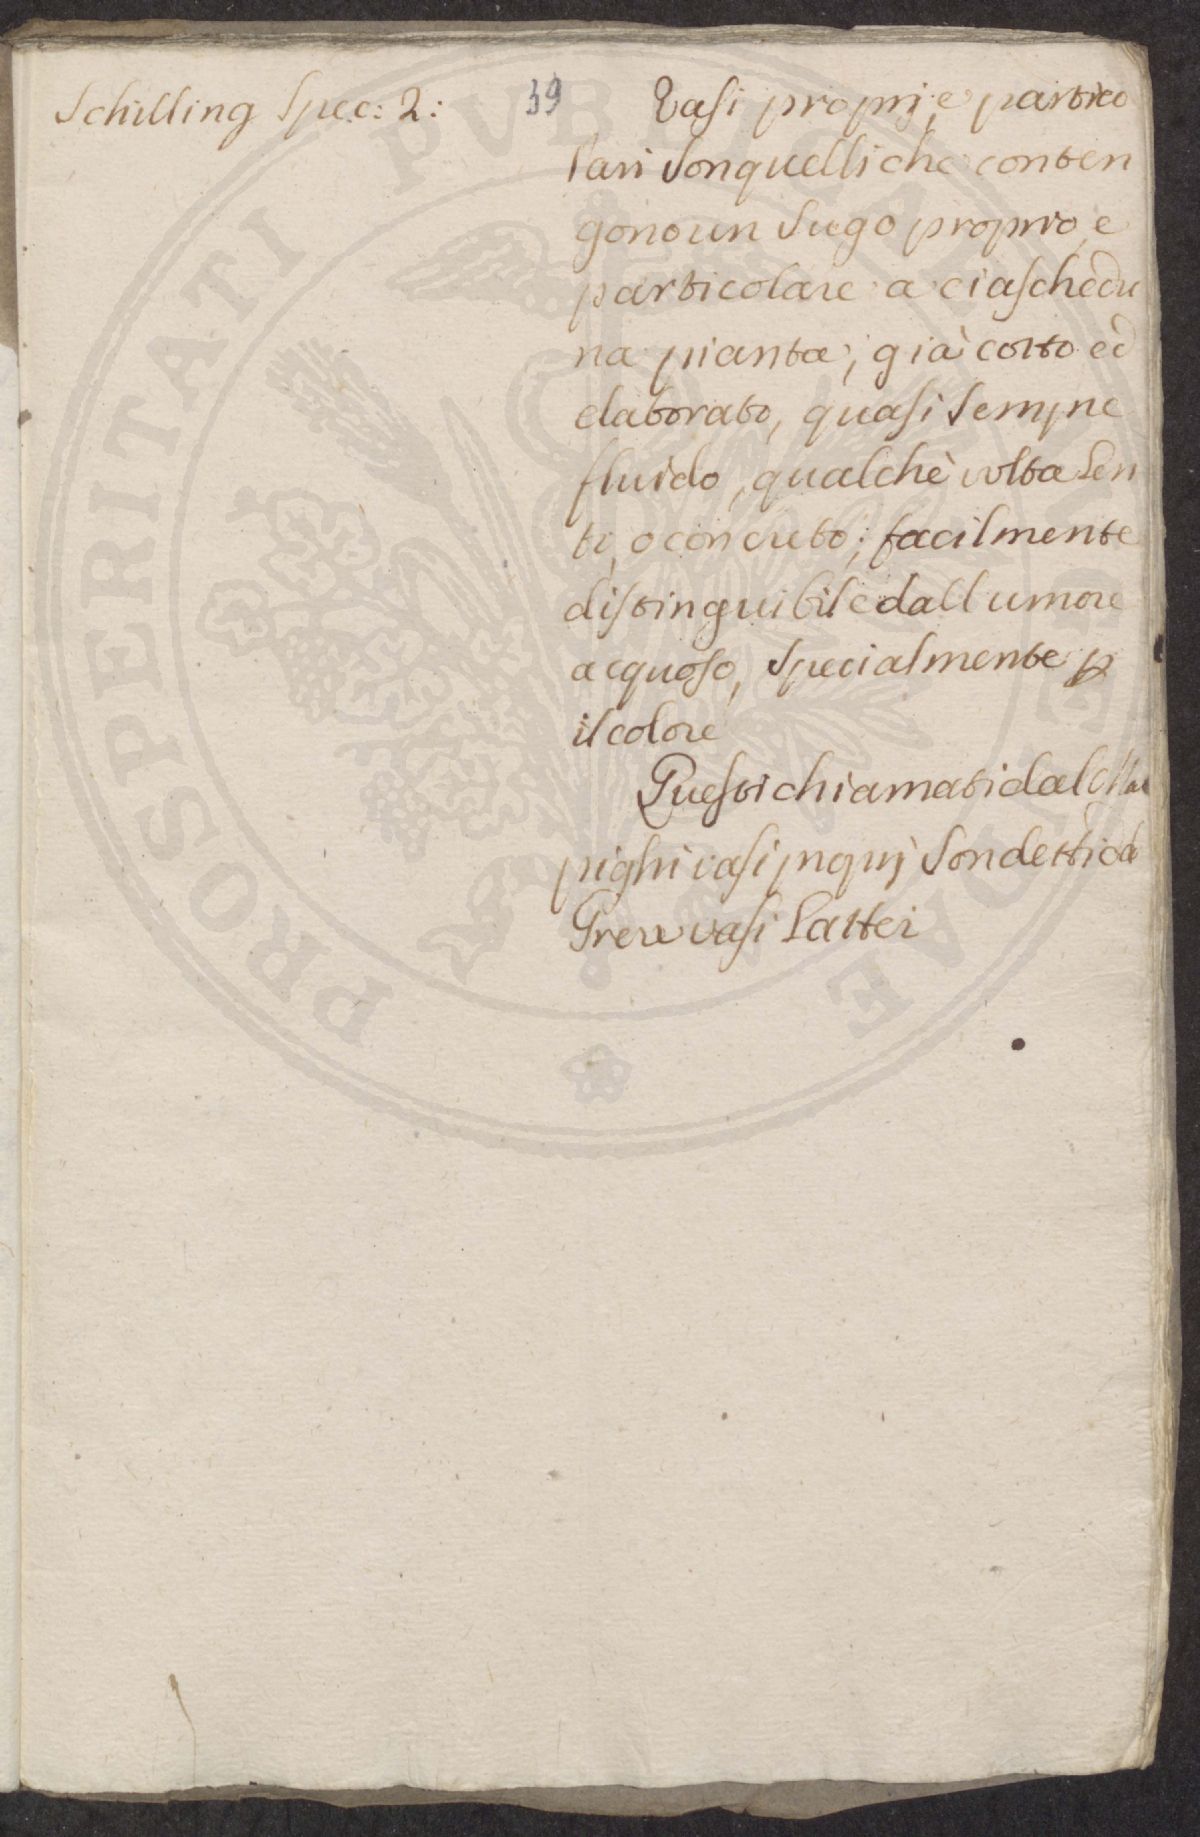 Schilling Spec: 2:
39
Vasi proprj, e partico
lari son quelli che conten
gono un sugo proprio, e
particolare a ciaschedu
na pianta, già cotto ed
elaborato, quasi sempre
fluido, qualchè volta len
to, o concreto; facilmente
distinguibile dall umore
acquoso, specialmente p
il colore
Questi chiamati dal Mal
pighi vasi proprj son detti da
Grew vasi lattei
PROSPERITATI PVBLICAE AVGENDAE